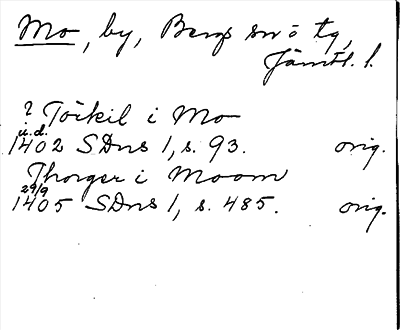 Mo, by, Bergs sn o tg,
Jämtl. l.
? Torkil i Mo
u.d.
1402 SDns 1, s. 93. orig.
Thorger i Moom
29/9
1405 SDns 1, s. 485. orig.